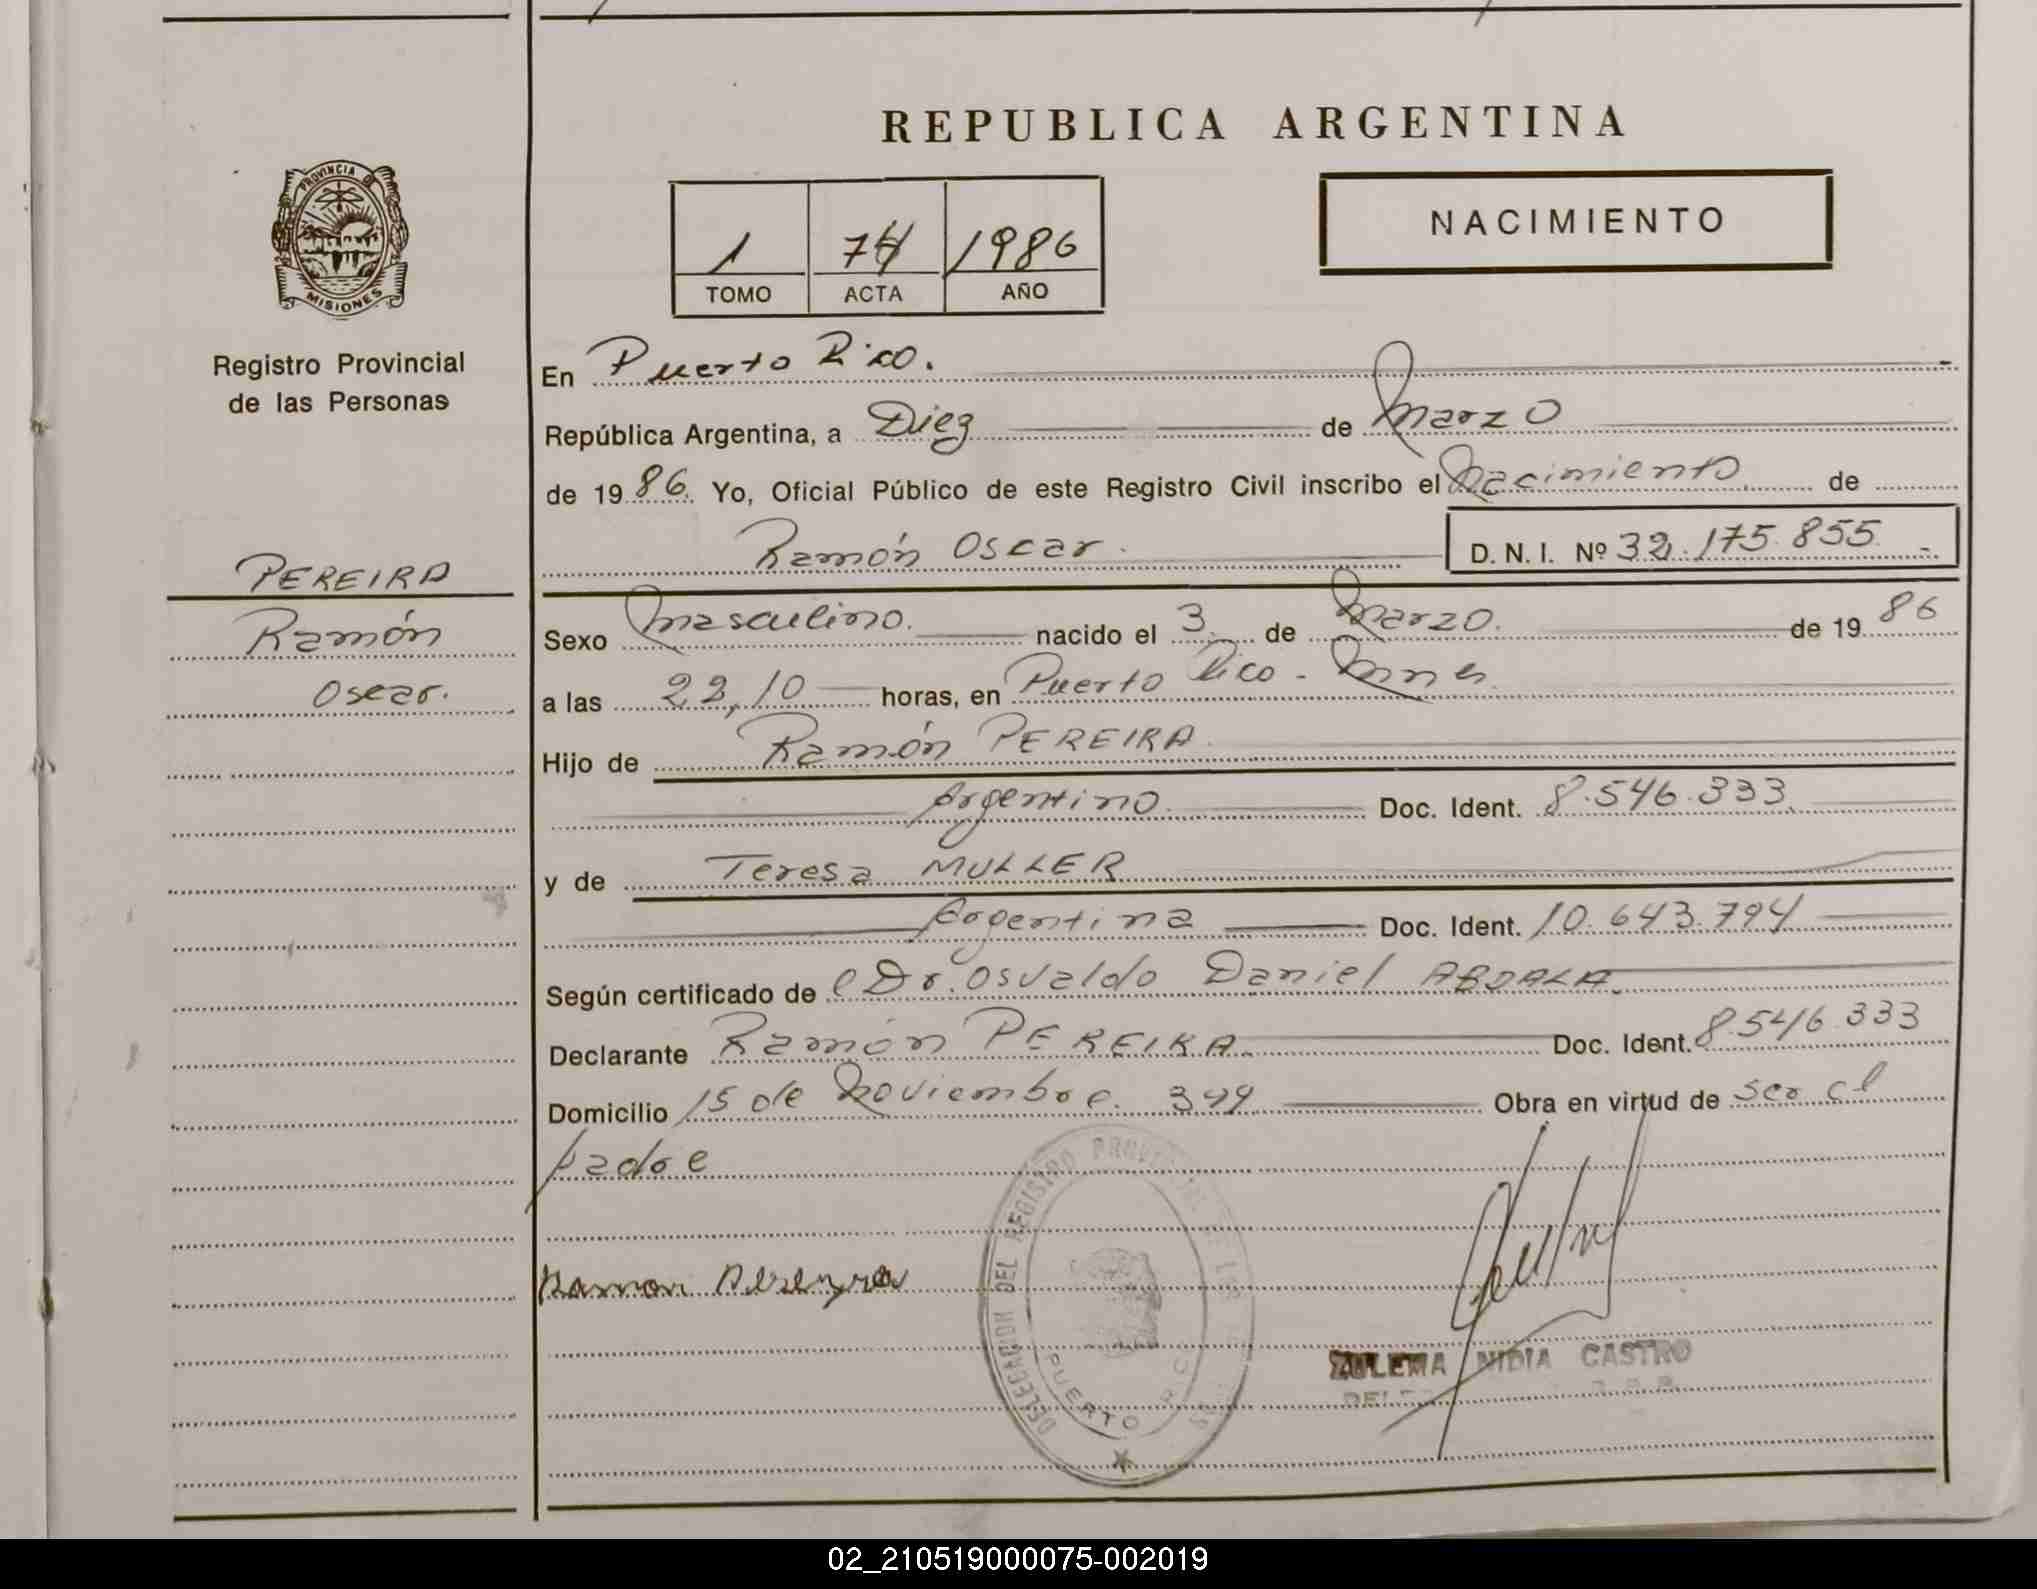 REPUBLICA ARGENTINA
PROVINCIA DE
MISIONES
Registro Provincial
de las Personas
NACIMIENTO
1 74 1986
TOMO ACTA AÑO
En Puerto Rico.
República Argentina, a Diez de Marzo
de 1986. Yo, Oficial Público de este Registro Civil inscribo el Nacimiento de
Ramón Oscar. D. N. I. Nº 32.175.855
PEREIRA
Ramón
Oscar.
Sexo Masculino. nacido el 3 de Marzo. de 1986
a las 22,10 horas, en Puerto Rico - Mnes.
Hijo de Ramón PEREIRA
Argentino. Doc. Ident. 8.546.333
y de Teresa MULLER
Argentina Doc. Ident. 10.643.794
Según certificado de Dr. Osvaldo Daniel ABDALA.
Declarante Ramón PEREIRA. Doc. Ident. 8.546.333
Domicilio 15 de Noviembre. 349 Obra en virtud de ser el
padre
Ramon Pereyra
DELEGACION DEL REGISTRO PROVINCIAL DE LAS
PUERTO RICO
ZULEMA NIDIA CASTRO
02_210519000075-002019